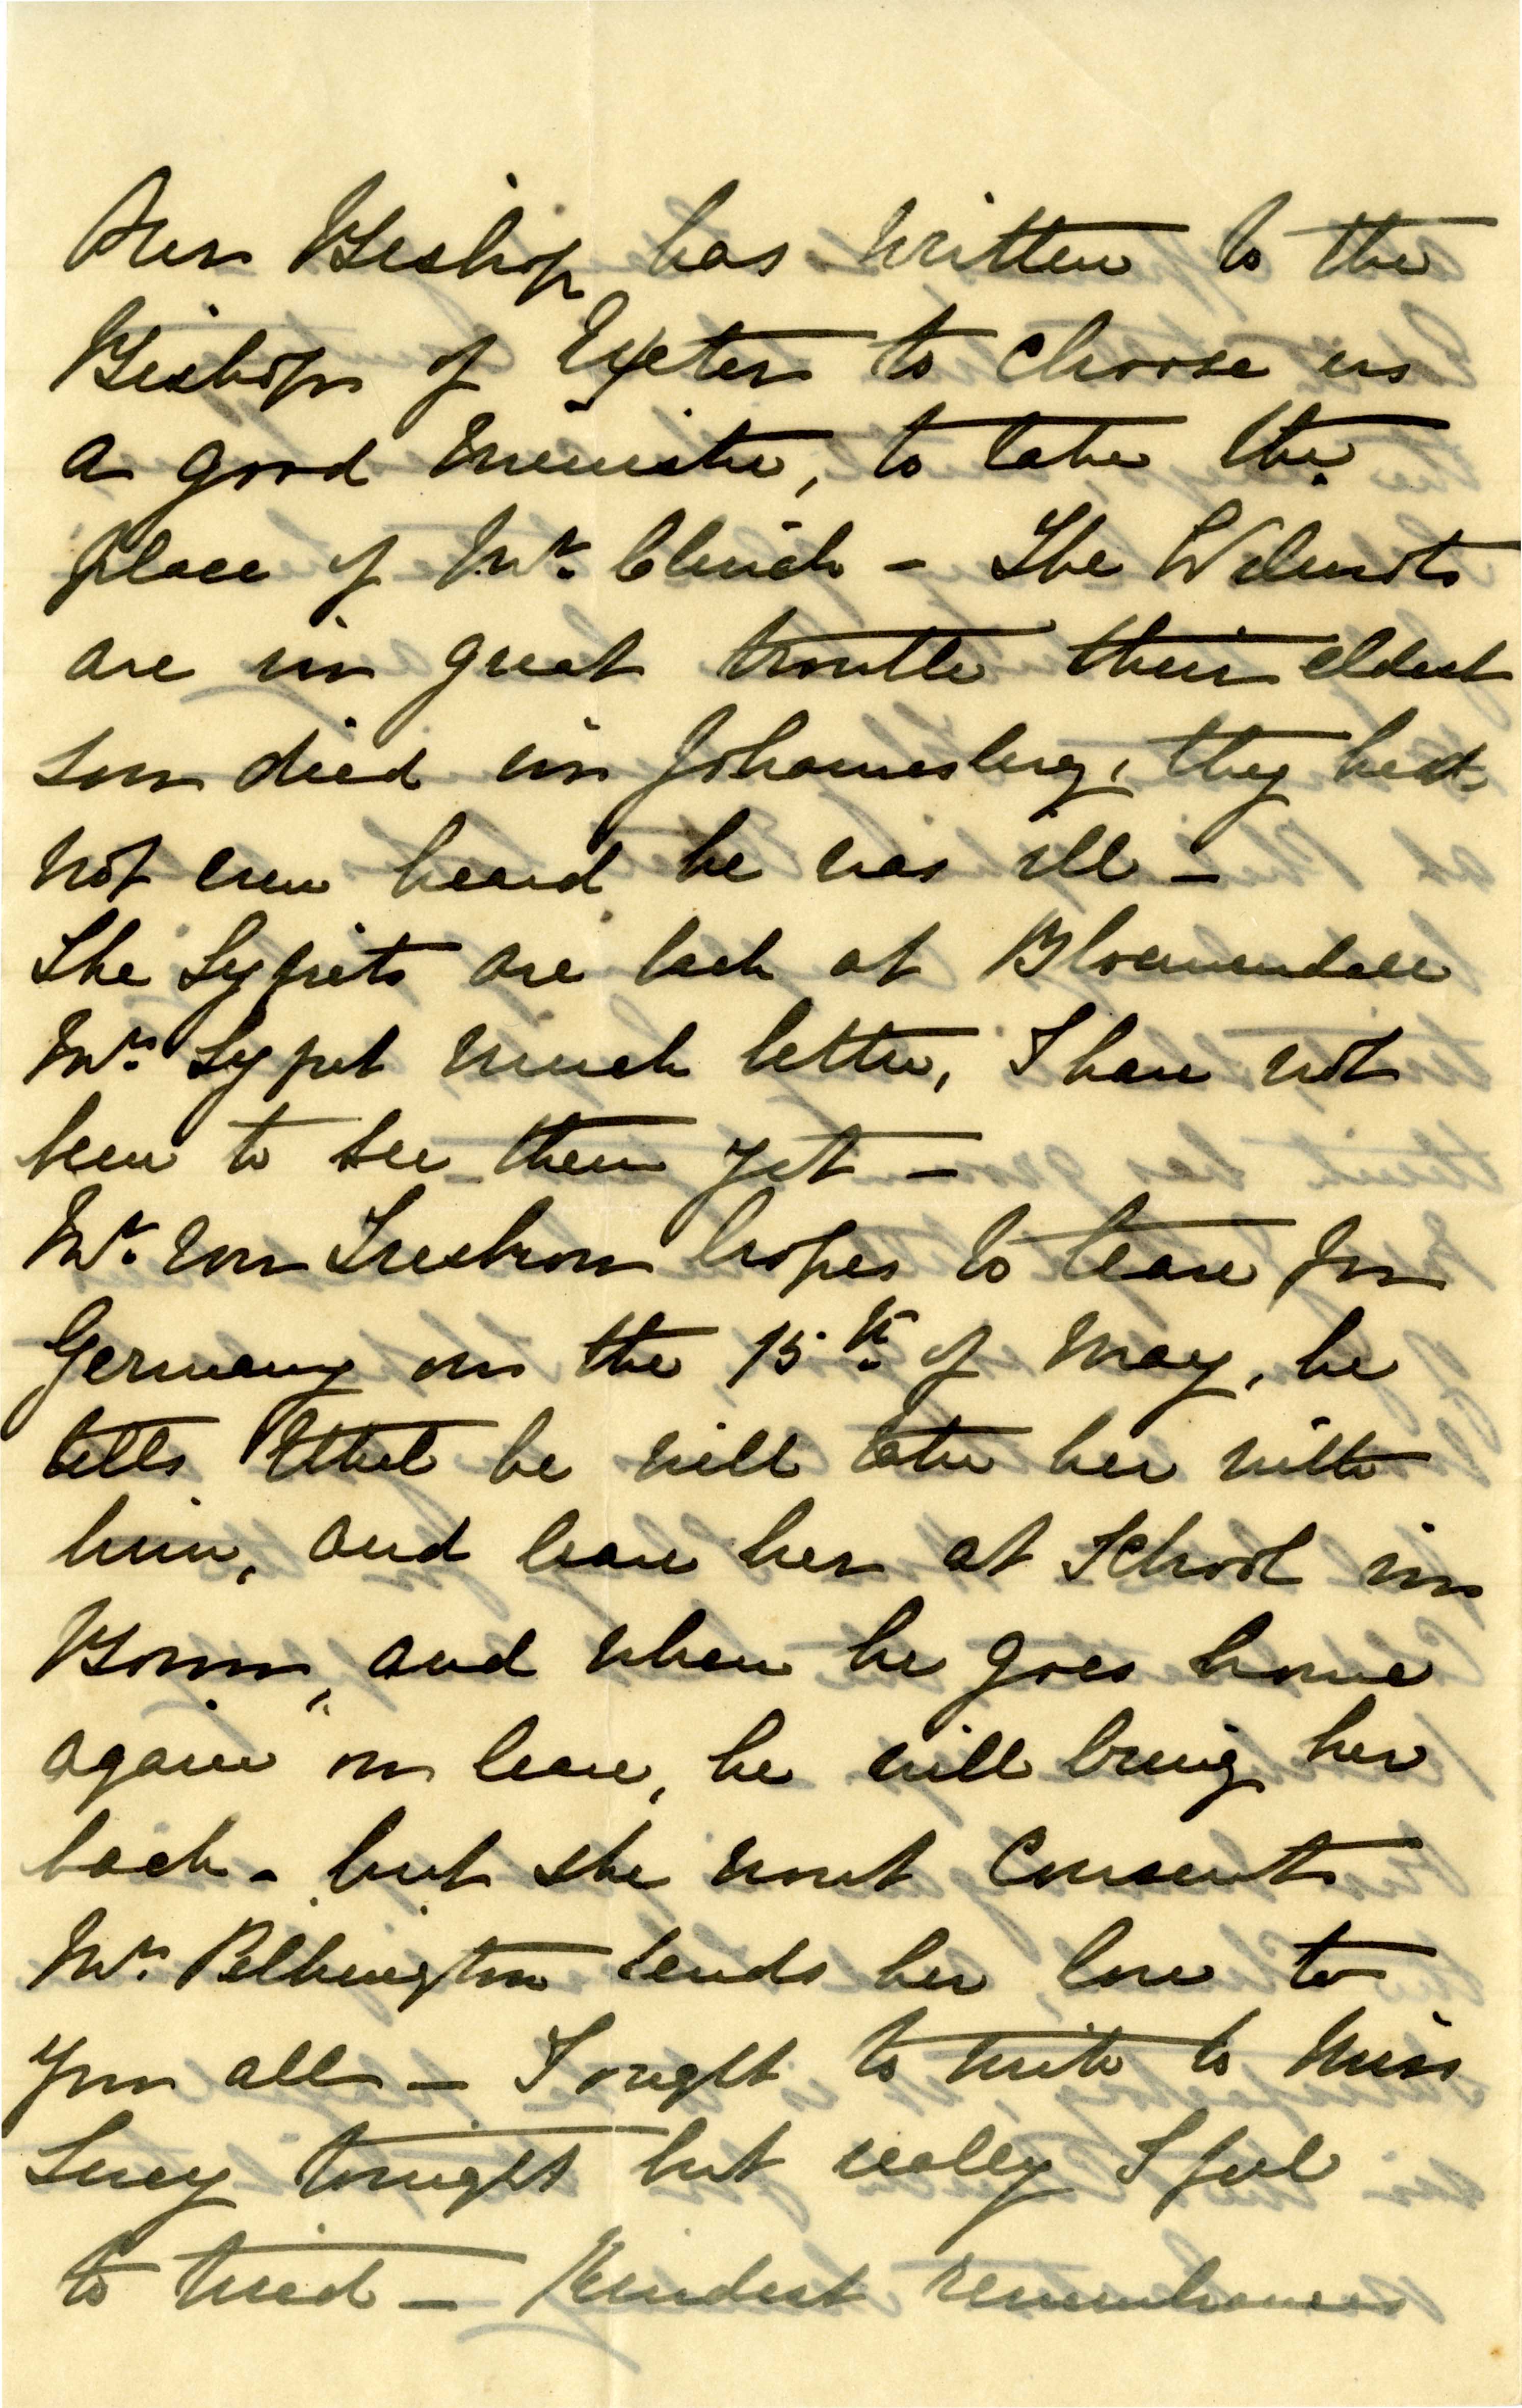 Our Bishop has written to the
Bishop of Exeter to choose us
a good minister, to take the
place of Mr. Clinch – The Wilmots
are in great trouble their eldest
son died in Johannesberg, they had
not even heard he was ill –
The Sypets are back at Bloemendall
Mrs. Sypet much better, I have not
been to see them yet –
Mr. von hopes to leave for
Germany on the 15th. of May, he
tells Ethel he will take her with
him, and leave her at School in
Bonn, and when he goes home
again on leave, he will bring her
back – but she wont Consent
Mrs. Pilkington sends her love to
you all – I ought to write to Miss
Lucy tonight but really I feel
to tired – Kindest remembrances